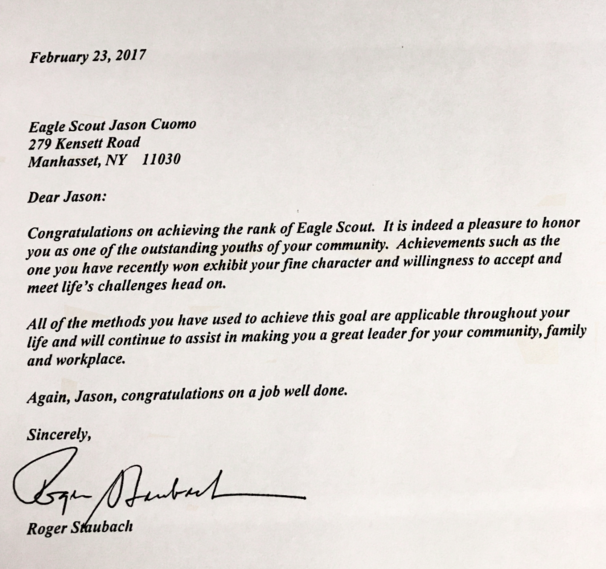 February 23, 2017
Eagle Scout Jason Cuomo
279 Kensett Road
Manhasset, NY 11030
Dear Jason:
Congratulations on achieving the rank of Eagle Scout. It is indeed a pleasure to honor
you as one of the outstanding youths of your community. Achievements such as the
one you have recently won exhibit your fine character and willingness to accept and
meet life's challenges head on.
All of the methods you have used to achieve this goal are applicable throughout your
life and will continue to assist in making you a great leader for your community, family
and workplace.
Again, Jason, congratulations on a job well done.
Sincerely,
Roger Staubach
Roger Staubach